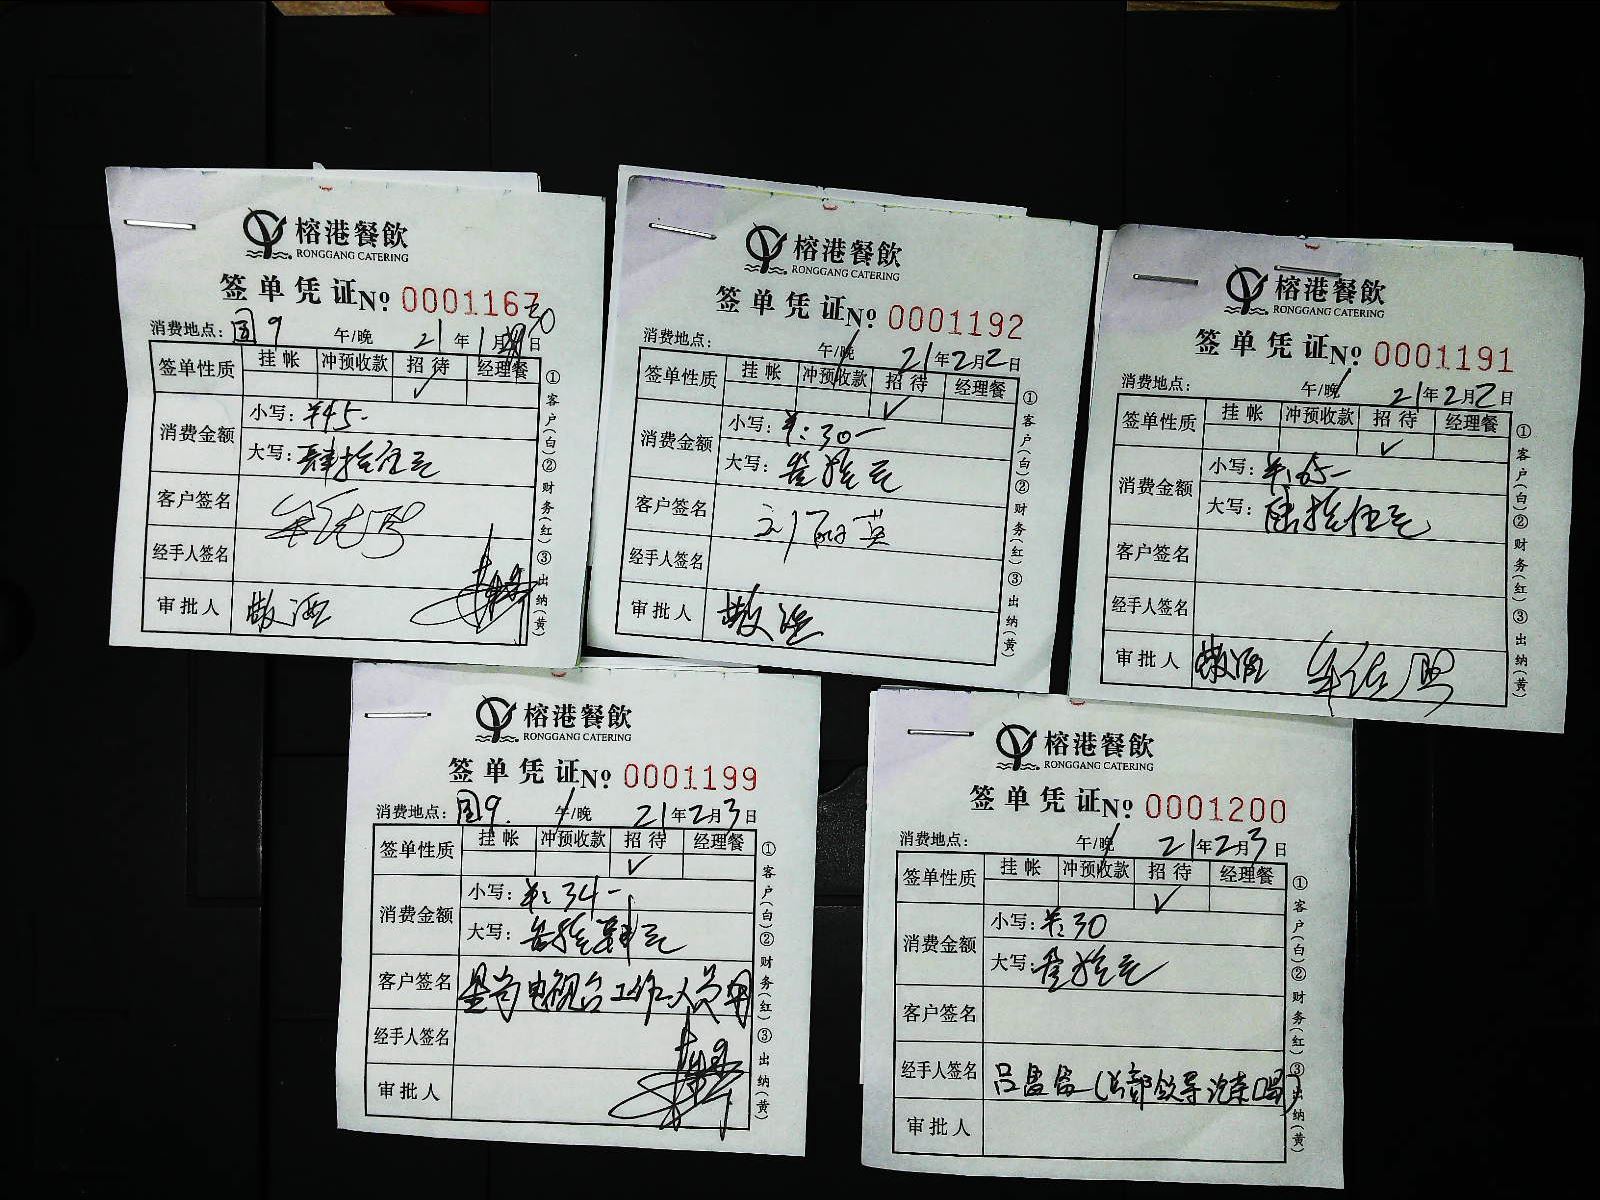 榕港餐飲
RONGGANG CATERING
签单凭证 No 0001167
消费地点: 国9 午/晚 21年1月30日
签单性质 挂帐 冲预收款 招待 经理餐
✓
消费金额 小写: ¥45-
大写: 肆拾伍元
客户签名
经手人签名
审批人 敬酒
①客户(白)②财务(红)③出纳(黄)
榕港餐飲
RONGGANG CATERING
签单凭证 No 0001192
消费地点: 午/晚 21年2月2日
签单性质 挂帐 冲预收款 招待 经理餐
✓
消费金额 小写: ¥:30-
大写: 叁拾元
客户签名 刘丽英
经手人签名
审批人 敬酒
①客户(白)②财务(红)③出纳(黄)
榕港餐飲
RONGGANG CATERING
签单凭证 No 0001191
消费地点: 午/晚 21年2月2日
签单性质 挂帐 冲预收款 招待 经理餐
✓
消费金额 小写: ¥:65-
大写: 陆拾伍元
客户签名
经手人签名
审批人 敬酒
①客户(白)②财务(红)③出纳(黄)
榕港餐飲
RONGGANG CATERING
签单凭证 No 0001199
消费地点: 国9. 午/晚 21年2月3日
签单性质 挂帐 冲预收款 招待 经理餐
✓
消费金额 小写: ¥:34-
大写: 叁拾肆元
客户签名 星尚电视台工作人员用
经手人签名
审批人
①客户(白)②财务(红)③出纳(黄)
榕港餐飲
RONGGANG CATERING
签单凭证 No 0001200
消费地点: 午/晚 21年2月3日
签单性质 挂帐 冲预收款 招待 经理餐
✓
消费金额 小写: ¥:30
大写: 叁拾元
客户签名
经手人签名 (总部领导
审批人
①客户(白)②财务(红)③出纳(黄)